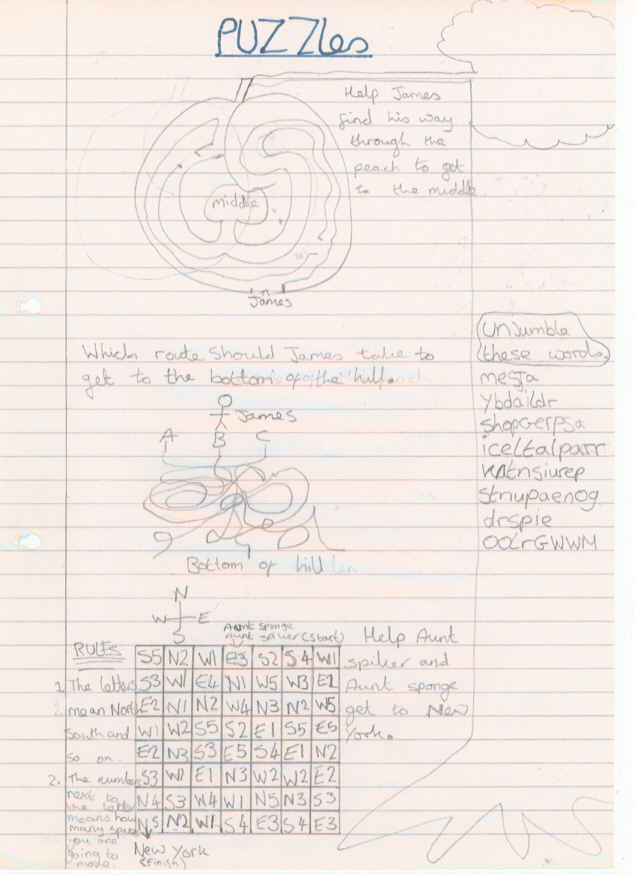 PUZZles
Help James
find his way
through the
peach to get
to the middle
middle
James
Which route should James take to
get to the bottom of the hill.
James
A B C
Bottom of hill
UNJumble
these words
mesja
Ybdaildr
shopGerpsa
iceltalparr
stnupaenog
drspie
OOlrGWWM
N
W E
S
Aunt sponge
Aunt spiker (Start)
Help Aunt
spiker and
Aunt sponge
get to New
York.
RULES
1. The letters
mean North
South and
so on.
2. The number
next to
the letter
means how
many spaces
you are
going to
move.
S5 N2 W1 E3 S2 S4 W1
S3 W1 E4 N1 W5 W3 E2
E2 N1 N2 W4 N3 N2 W5
W1 W2 S5 S2 E1 S5 E5
E2 N3 S3 E5 S4 E1 N2
S3 W2 E1 N3 W2 W2 E2
N4 S3 W4 W1 N5 N3 S3
N5 N2 W1 S4 E3 S4 E3
New York
(Finish)